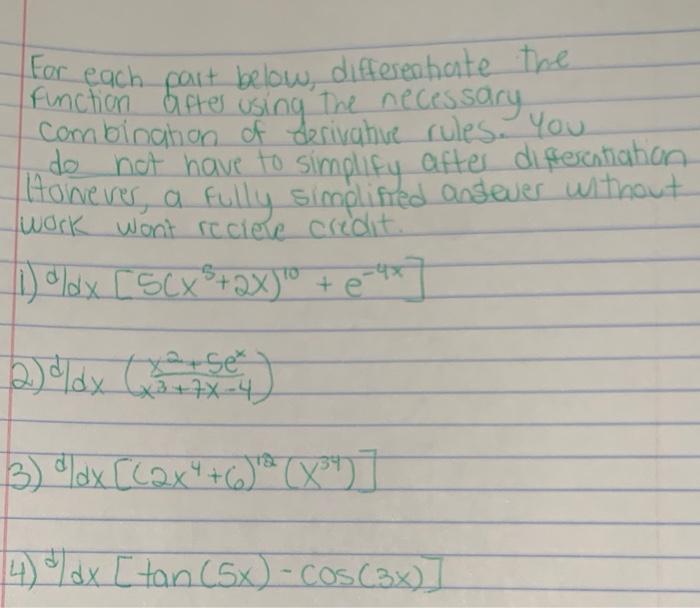 For each part below, differentiate the
function after using the necessary
combination of derivative rules. You
do not have to simplify after differentiation
However, a fully simplified answer without
work wont recieve credit.
1) d/dx [5(x⁵+2x)¹⁰ + e⁻⁴ˣ]
2) d/dx ((x²+5eˣ)/(x³+7x-4))
3) d/dx [(2x⁴+6)¹²(x³⁴)]
4) d/dx [tan(5x)-cos(3x)]